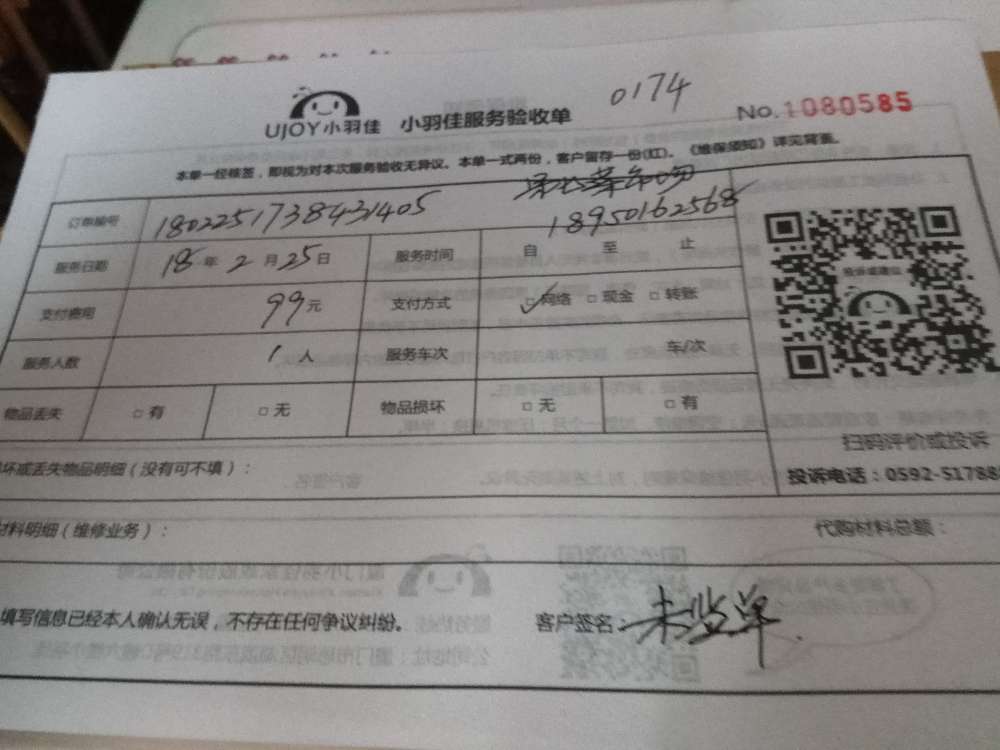 0174
UJOY小羽佳 小羽佳服务验收单 No.1080585
本单一经核签，即视为对本次服务验收无异议。本单一式两份，客户留存一份(红)。《维保须知》详见背面。
订单编号 1802251738431405 18950162568
服务日期 18年2月25日 服务时间 自 至 止
支付费用 99元 支付方式 ☑网络 □现金 □转账
服务人数 1人 服务车次 车/次
物品丢失 □有 □无 物品损坏 □无 □有
投诉或建议
扫码评价或投诉
坏或丢失物品明细（没有可不填）： 投诉电话：0592-51788
材料明细（维修业务）： 代购材料总额：
填写信息已经本人确认无误，不存在任何争议纠纷。 客户签名：